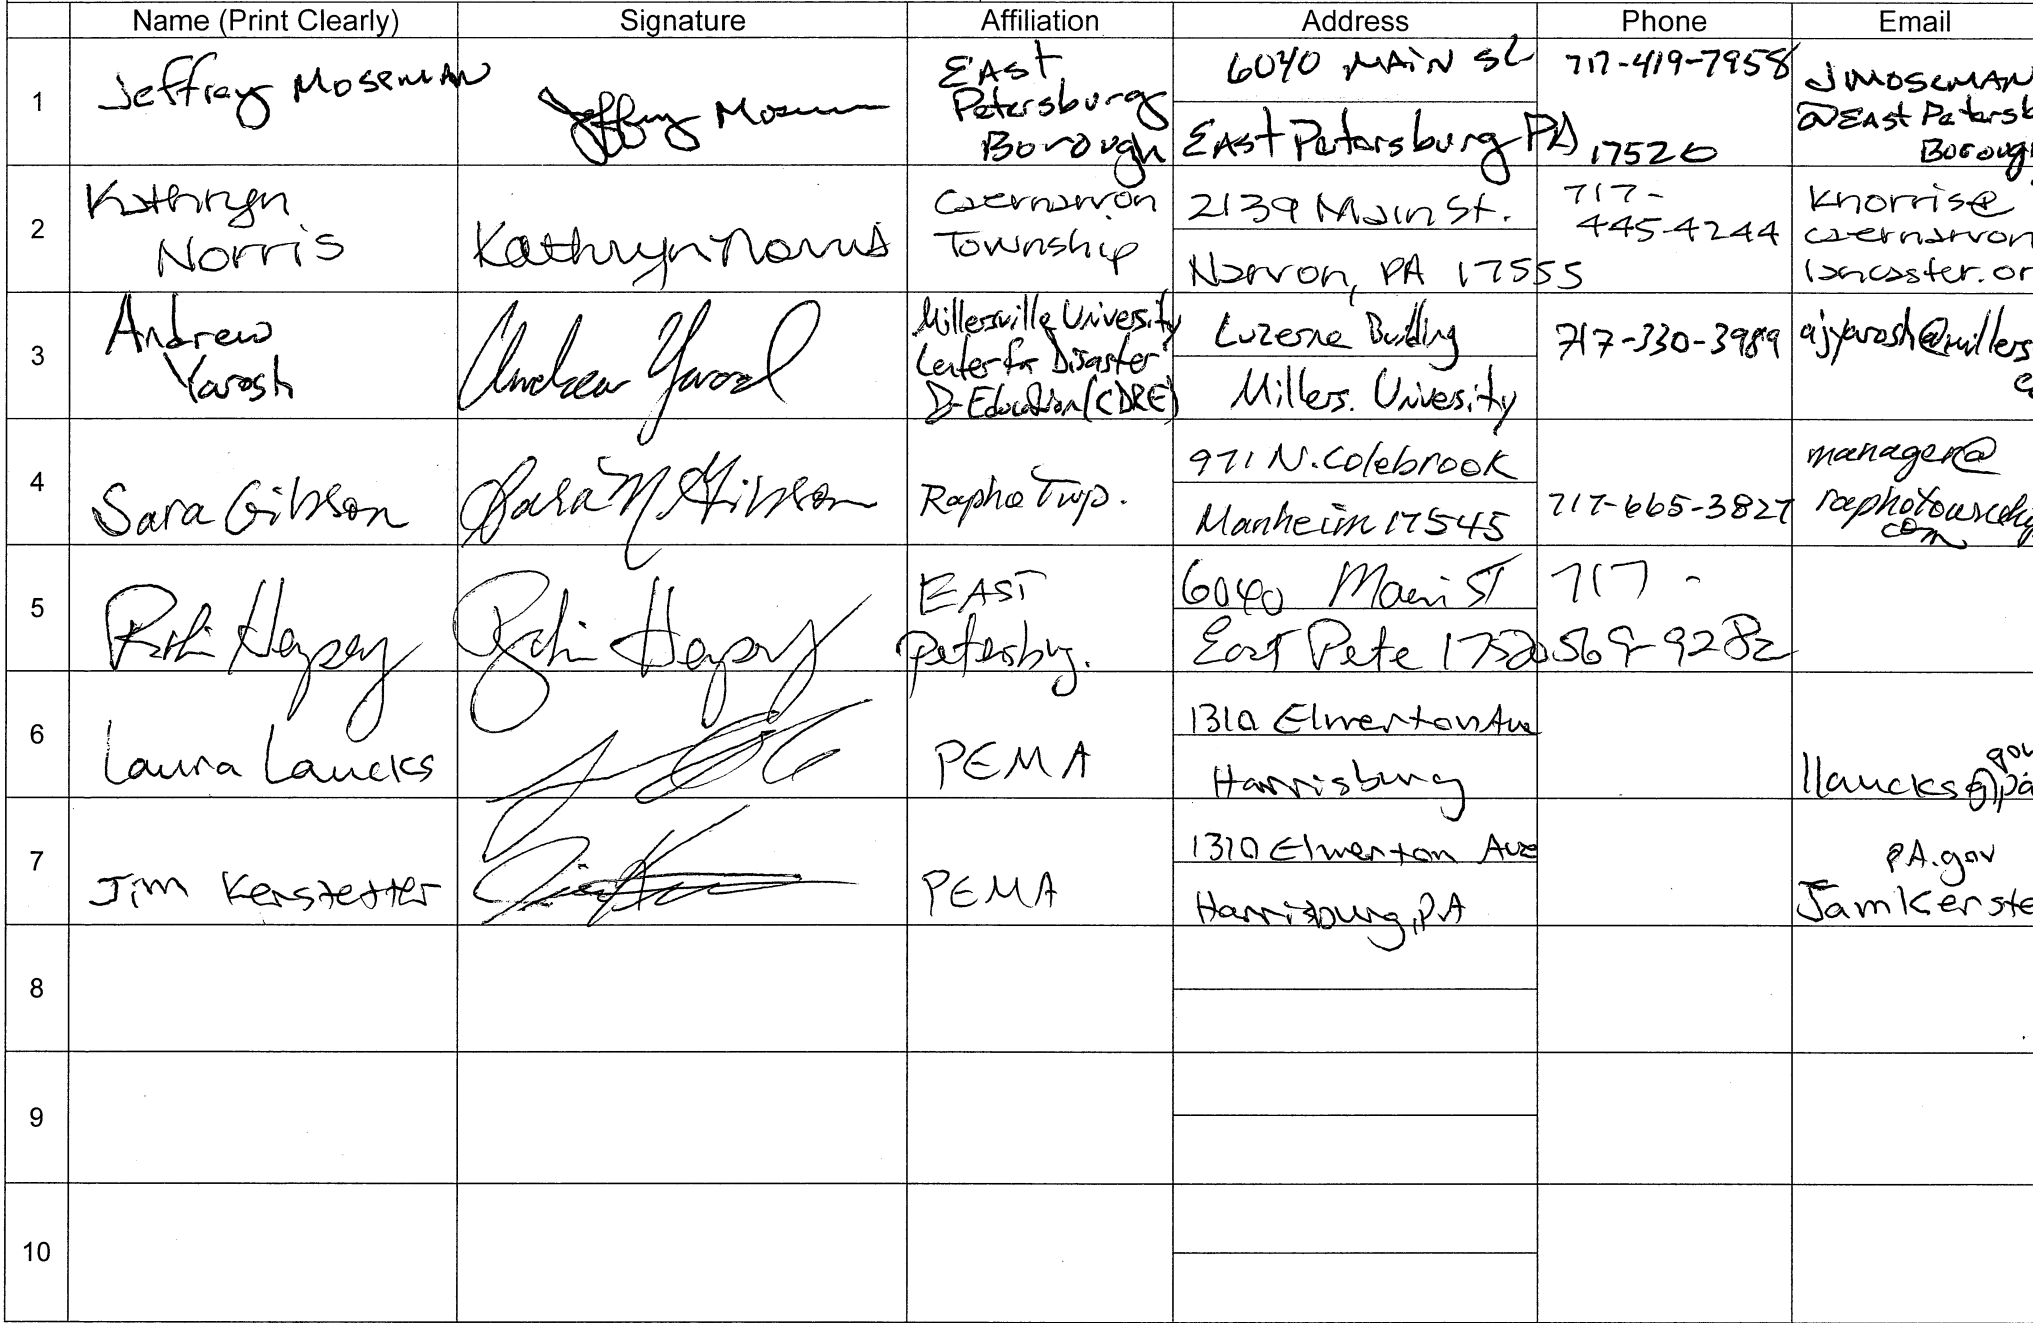 Name (Print Clearly) Signature Affiliation Address Phone Email
1
Jeffrey Moseman
Jeffrey Mosem
East
Petersburg
Borough
6040 Main St
East Petersburg PA
717-419-7958
17520
JMOSEMAN
@East Petersb
Boroug
2
Kathryn
Norris
Kathryn Norris
Caernarvon
Township
2139 Main St.
Narvon, PA 17555
717-
445-4244
Knorris@
caernarvon
lancaster.or
3
Andrew
Yarosh
Andrew Yarosh
Millersville University
Center for Disaster
Education (CDRE)
Luzerne Building
Millers. University
717-330-3989
ajyarosh@millers
4
Sara Gibson
Sara M Gibson
Rapho Twp.
971 N. Colebrook
Manheim 17545
717-665-3827
manager@
raphotownship
com
5
Robin Hepsey
Robin Hepsey
EAST
Petersbrg.
6040 Main ST
East Pete 17520
717-
569-9282
6
Laura Laucks
PEMA
1310 Elmerton Ave
Harrisburg
gov
llaucks@pa
7
Jim Kerstetter
PEMA
1310 Elmerton Ave
Harrisburg, PA
PA.gov
JamKerste
8
9
10